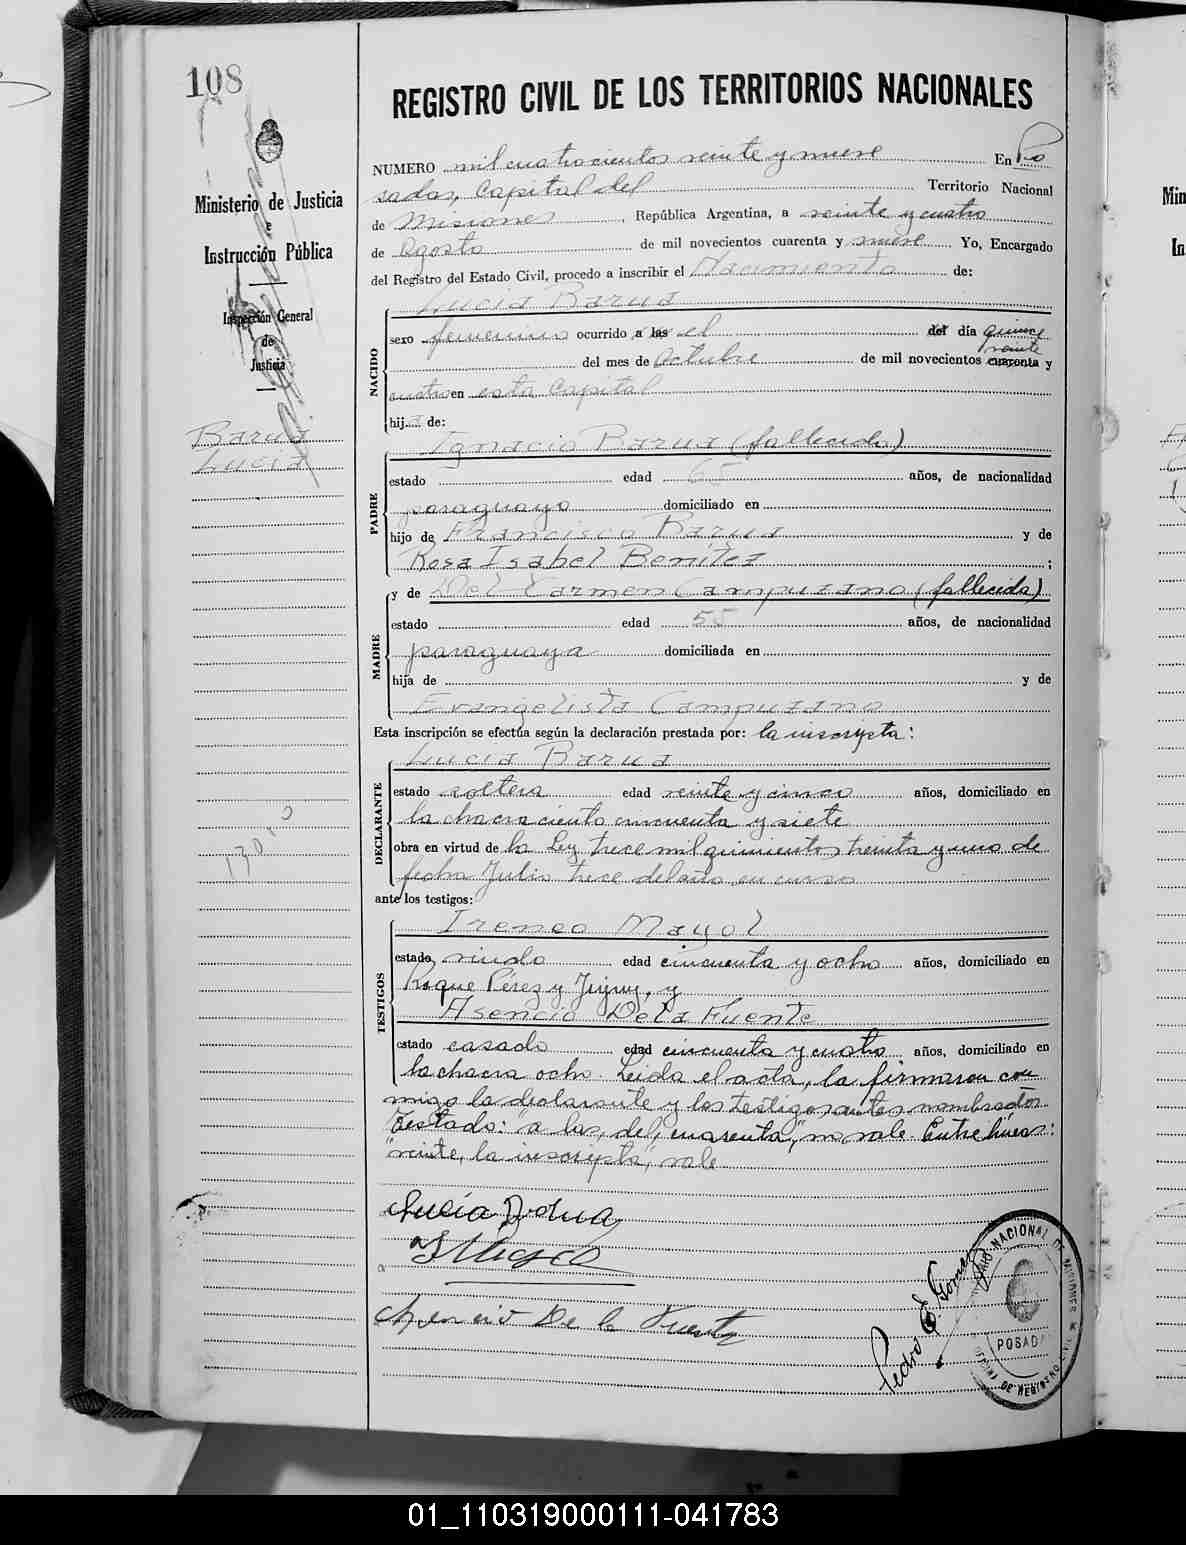 108
REGISTRO CIVIL DE LOS TERRITORIOS NACIONALES
Ministerio de Justicia
e
Instrucción Pública
Inspección General
de
Justicia
Barua
Lucia
NUMERO mil cuatrocientos veinte y nueve En Po
sadas, Capital del Territorio Nacional
de Misiones, República Argentina, a veinte y cuatro
de Agosto de mil novecientos cuarenta y nueve Yo, Encargado
del Registro del Estado Civil, procedo a inscribir el Nacimiento de:
Lucia Barua
NACIDO
sexo femenino ocurrido a las el del día quince
veinte
del mes de Octubre de mil novecientos cuarenta y
cuatro en esta Capital
hija de:
Ignacio Barua (fallecido)
PADRE
estado edad 65 años, de nacionalidad
paraguayo domiciliado en
hijo de Francisco Barua y de
Rosa Isabel Benítez ;
y de Del Carmen Campuzano (fallecida)
MADRE
estado edad 55 años, de nacionalidad
paraguaya domiciliada en
hija de y de
Evangelista Campuzano
Esta inscripción se efectúa según la declaración prestada por: la inscripta:
Lucia Barua
DECLARANTE
estado soltera edad veinte y cinco años, domiciliado en
la chacra ciento cincuenta y siete
obra en virtud de la Ley trece mil quinientos treinta y uno de
fecha Julio trece del año en curso
ante los testigos:
Ireneo Mayol
TESTIGOS
estado viudo edad cincuenta y ocho años, domiciliado en
Roque Pérez y Jujuy, y
Asencio De la Fuente
estado casado edad cincuenta y cuatro años, domiciliado en
la chacra ocho. Leida el acta, la firmaron con
migo la declarante y los testigos antes nombrados
Testado: "a las, del, cuarenta," no vale. Entre líneas:
"veinte, la inscripta", vale
Lucía Barua
Asencio De la Fuente
Pedro E. Gomez
NACIONAL DE MISIONES
POSADAS
DE REGISTRO CIVIL
01_110319000111-041783